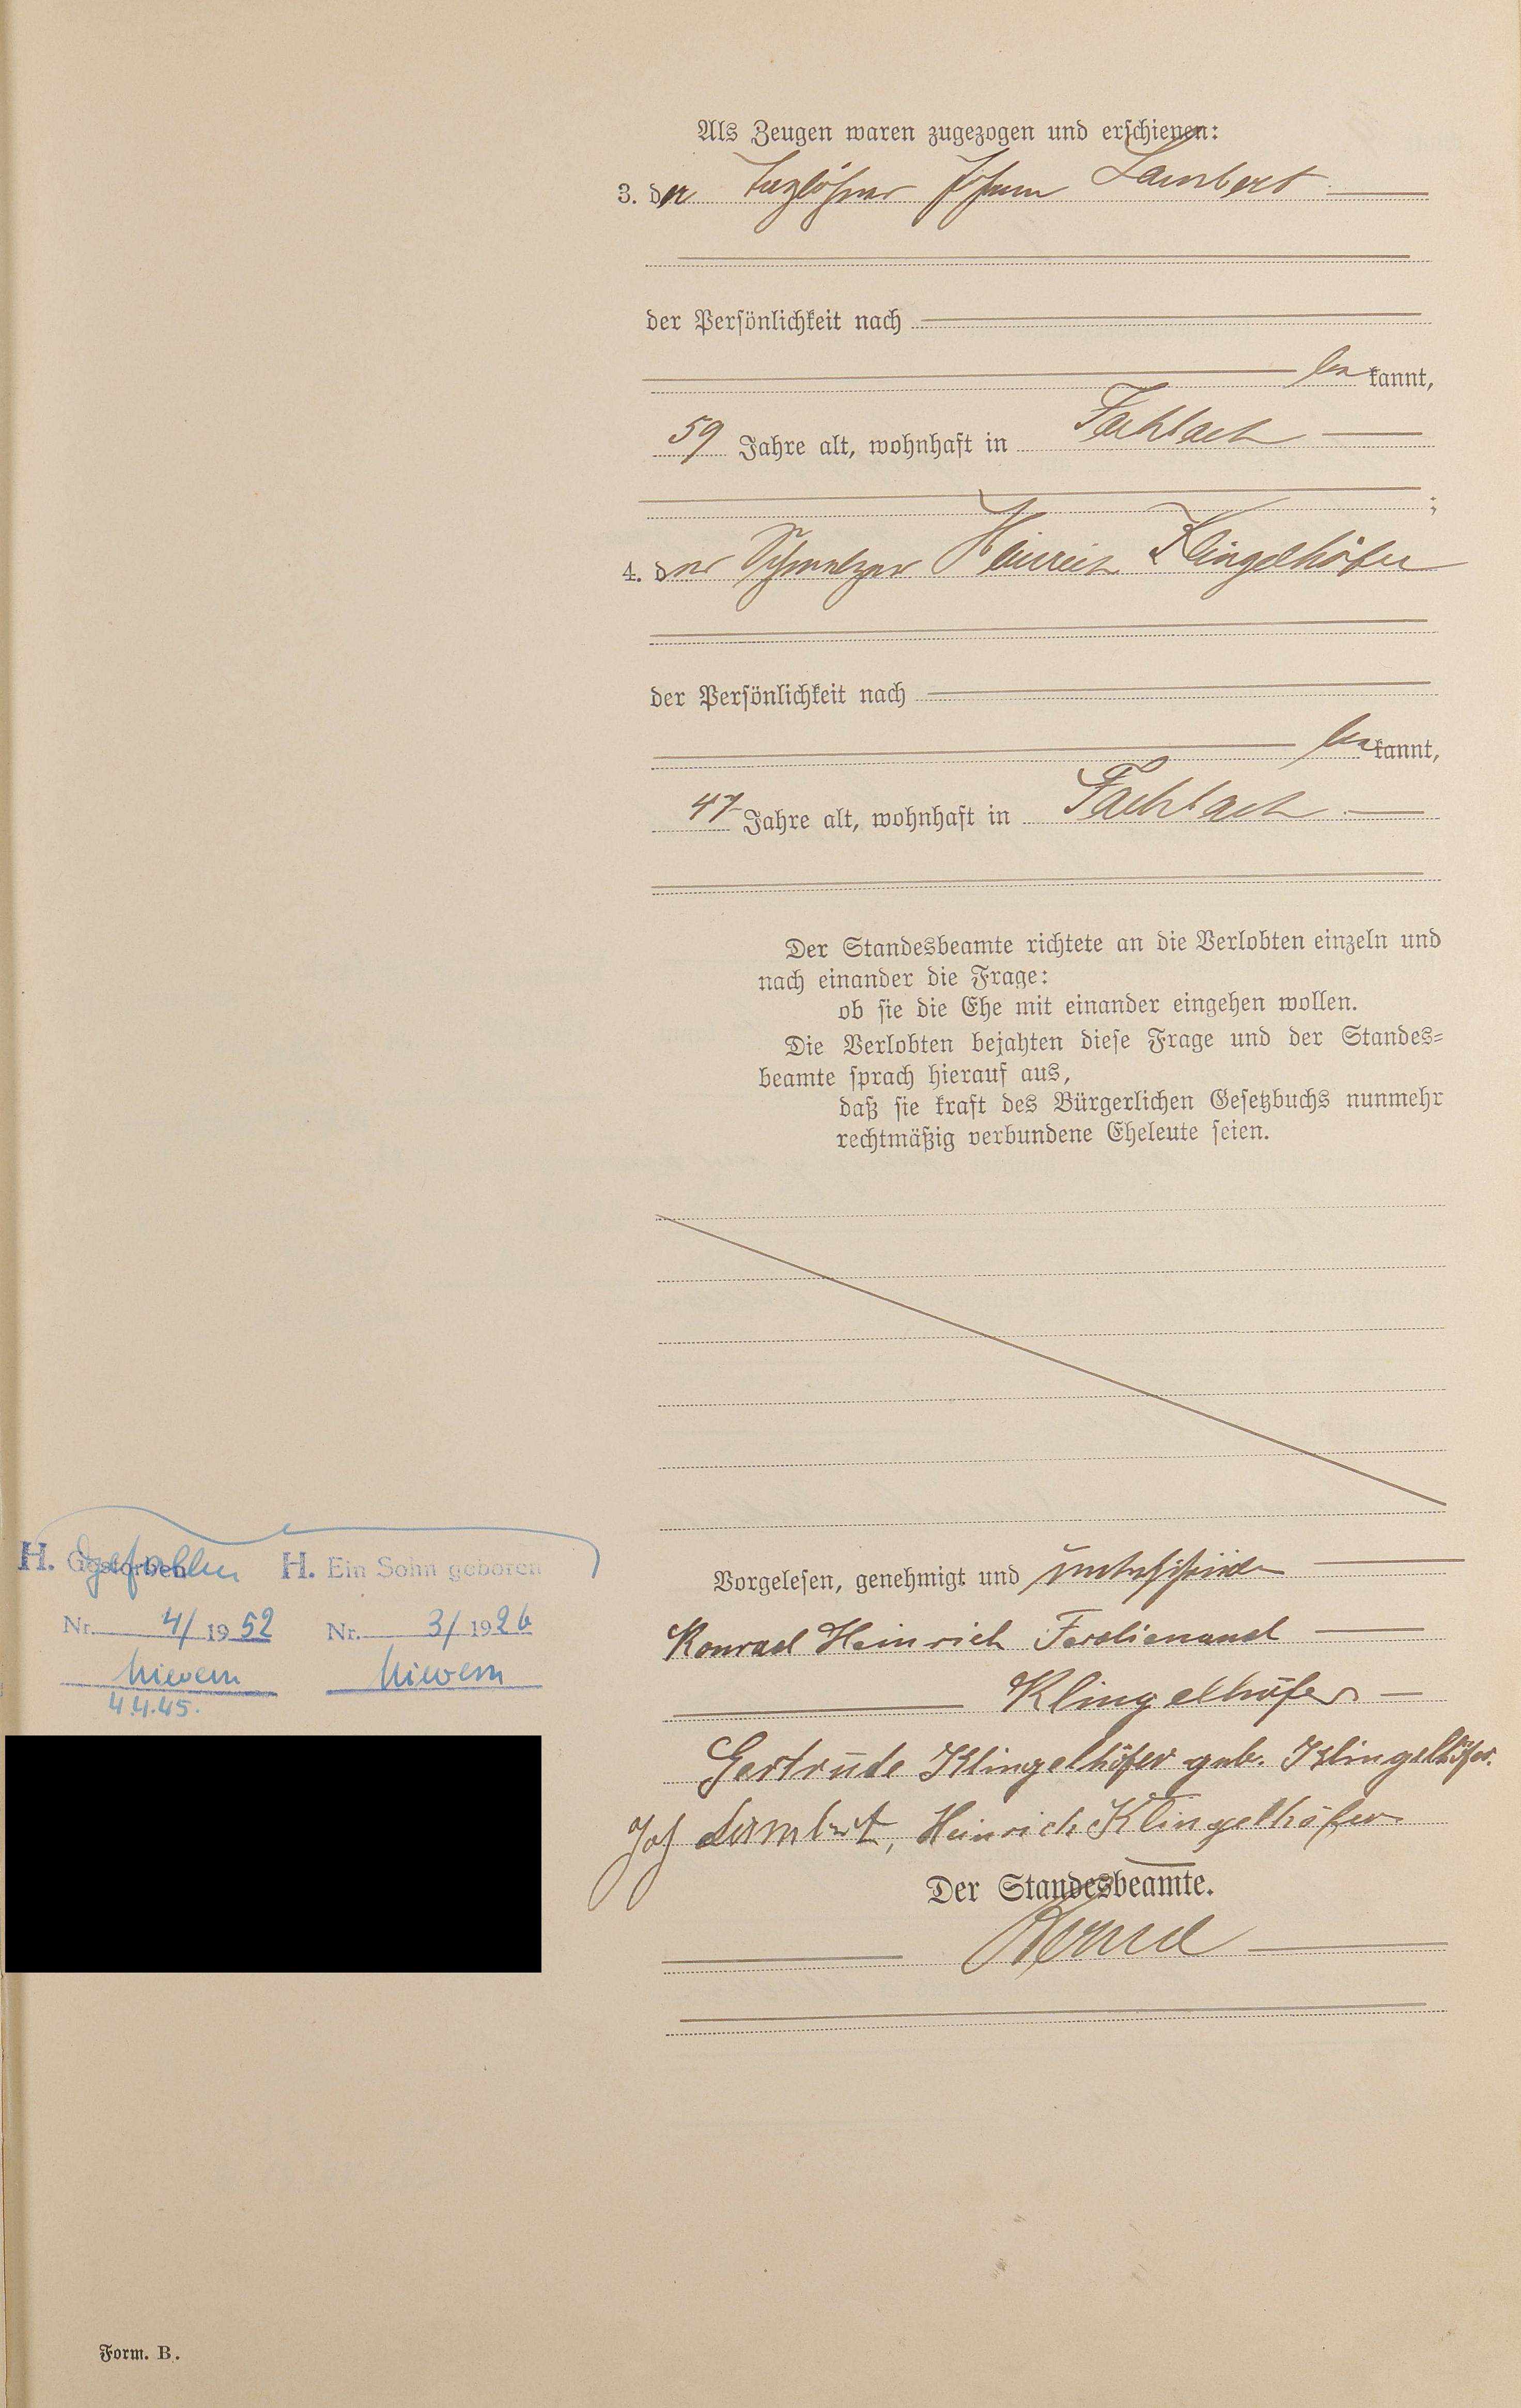 Als Zeugen waren zugezogen und erschienen:
3. der Taglöhner Johann Lambert
der Persönlichkeit nach
bekannt,
59 Jahre alt, wohnhaft in Fachbach
;
4. der Schmelzer Heinrich Klingelhöfer
der Persönlichkeit nach
bekannt,
47 Jahre alt, wohnhaft in Fachbach
Der Standesbeamte richtete an die Verlobten einzeln und
nach einander die Frage:
ob sie die Ehe mit einander eingehen wollen.
Die Verlobten bejahten diese Frage und der Standes=
beamte sprach hierauf aus,
daß sie kraft des Bürgerlichen Gesetzbuchs nunmehr
rechtmäßig verbundene Eheleute seien.
Vorgelesen, genehmigt und unterschrieben
Konrad Heinrich Ferdienand
Klingelhöfer
Gertrude Klingelhöfer geb. Klingelhöfer.
Joh Lambert, Heinrich Klingelhöfer
Der Standesbeamte.
H. Gestorben gefallen
Nr. 4/1952
Nievern
4.4.45.
H. Ein Sohn geboren
Nr. 3/1926
Nievern
Form. B.